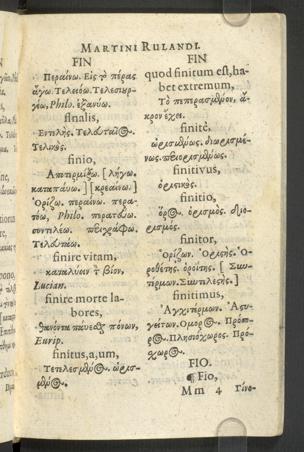 MARTINI RULANDI.
FIN
Περαίνω. Εἰς τὸ πέρας
ἄγω. Τελειόω. Τελεσιυρ-
γέω, Philo. ἐξανύω.
finalis,
Ἐντελὴς. Τελευταῖος.
Τελικὸς.
finio,
Ἀποτερματίζω. [λήγω.
καταπαύω.] [κρεαίνω.]
Ὁρίζω. περαίνω. περα-
τόω, Philo. περατεύω.
συντελέω. περιγράφω.
Τελευτάω.
finire vitam,
καταλύειν τὸν βίον,
Lucian.
finire morte la-
bores,
θανόντα παυεσθαι πόνων,
Eurip.
finitus,a,um,
Τετελεσμένος. ὡρισ-
μένος.
FIN
quod finitum est, ha-
bet extremum,
Τὸ πεπερασμένον, ἄ-
κρον ἔχει.
finitè,
ὡρισμένως. διωρισμέ-
νως. περιορισμένως.
finitivus,
ὁριστικὸς.
finitio,
ὅρος. ὁρισμὸς. διο-
ρισμὸς.
finitor,
Ὁρίζων. Ὁριστὴς. Ὁ-
ροθέτης. [Συν-
finitimus,
Ἀγχιτέρμων. Ἀστυ-
γείτων. Ὅμορος. Πρόσο-
ρος. Πλησιόχωρος. Πρό-
χωρος.
FIO.
¶ Fio,
Mm 4 Γίνο-